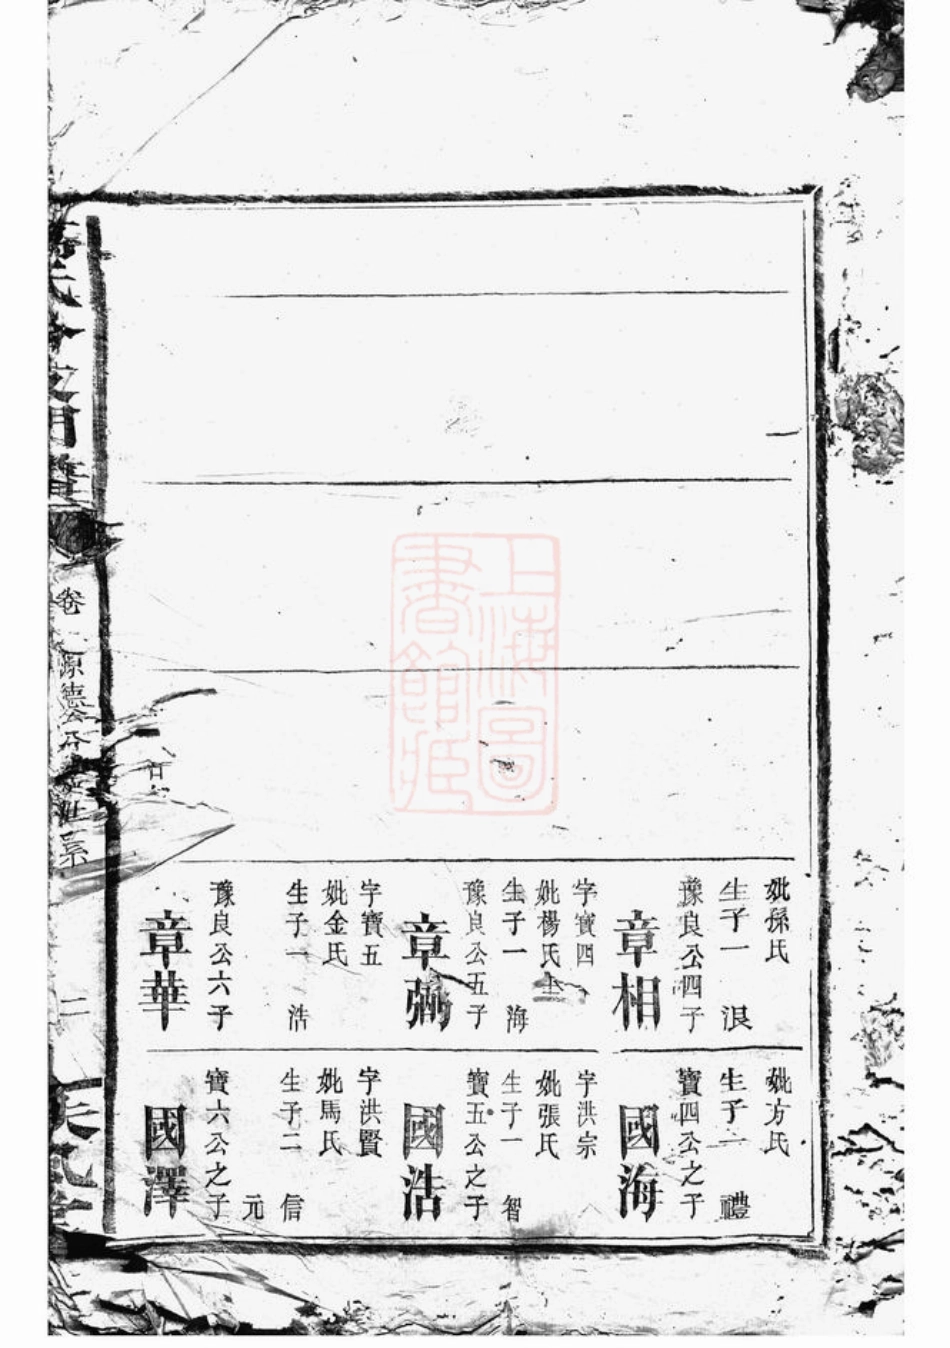 妣孫氏
生子一　浪
豫良公四子
章相
字寶四
妣楊氏
生子一　海
豫良公五子
章
字寶五
妣金氏
生子一　浩
豫良公六子
章華
妣方氏
生子二　禮
寶四公之子
國海
字洪宗
妣張氏
生子一　智
寶五公之子
國浩
字洪賢
妣馬氏
生子二　信
元
寶六公之子
國澤
卷
源德公
二
上海圖
書館藏